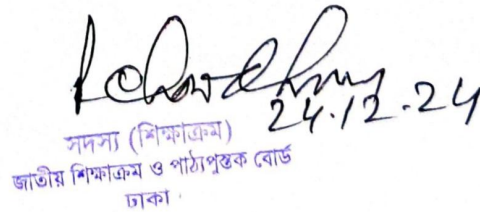 24.12.24
সদস্য (শিক্ষাক্রম)
জাতীয় শিক্ষাক্রম ও পাঠ্যপুস্তক বোর্ড
ঢাকা